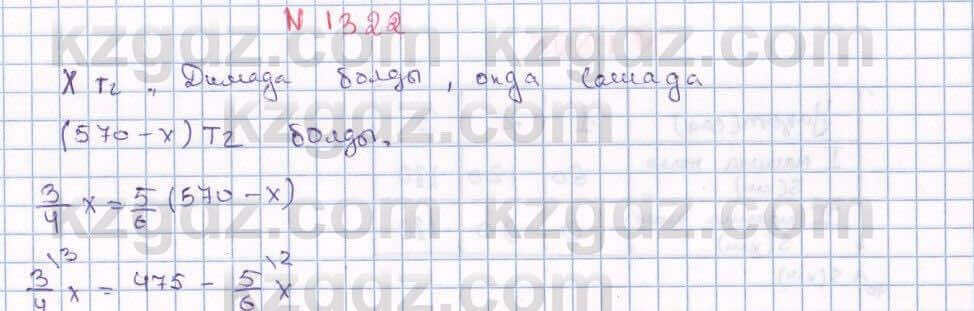 N 1322
X тг, Димада болды, онда Сашада
(570-x) тг болды.
3/4 x = 5/6 (570-x)
3/4 \3 x = 475 - 5/6 \2 x
kzgdz.com kzgdz.com
kzgdz.com
kzgdz.com kzgdz.com
kzgdz.com